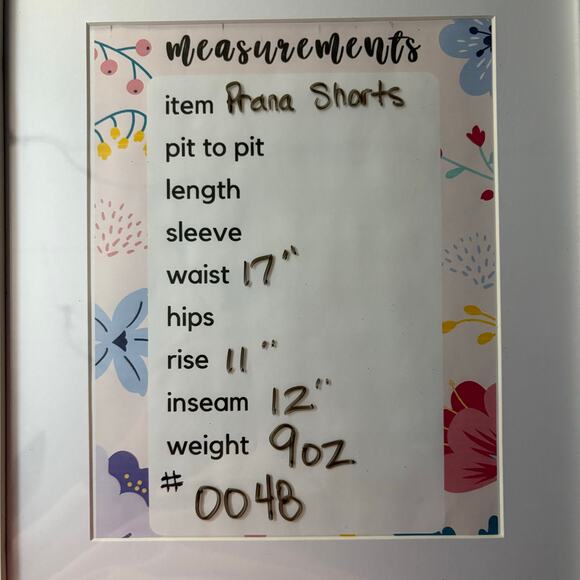 measurements
item Prana Shorts
pit to pit
length
sleeve
waist 17"
hips
rise 11"
inseam 12"
weight 9oz
# 0048